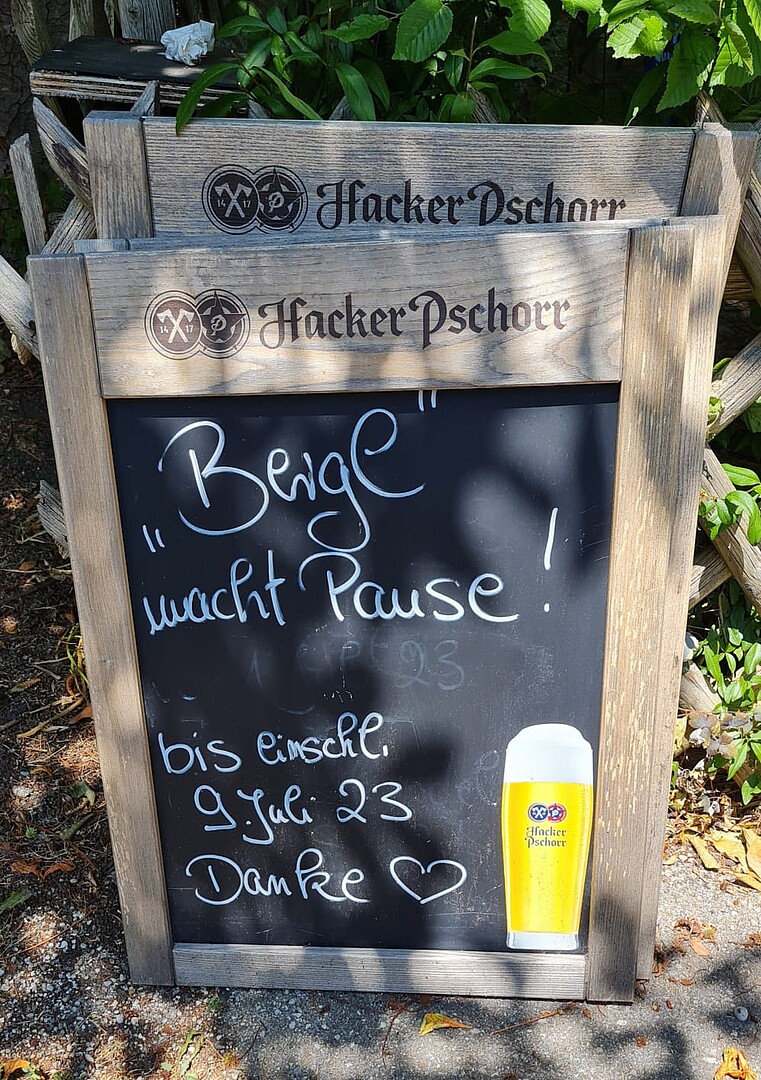 14 17 Hacker Pschorr
14 17 Hacker Pschorr
"Bergl"
macht Pause!
23
bis einschl.
9. Juli 23
Danke ♡
Hacker
Pschorr